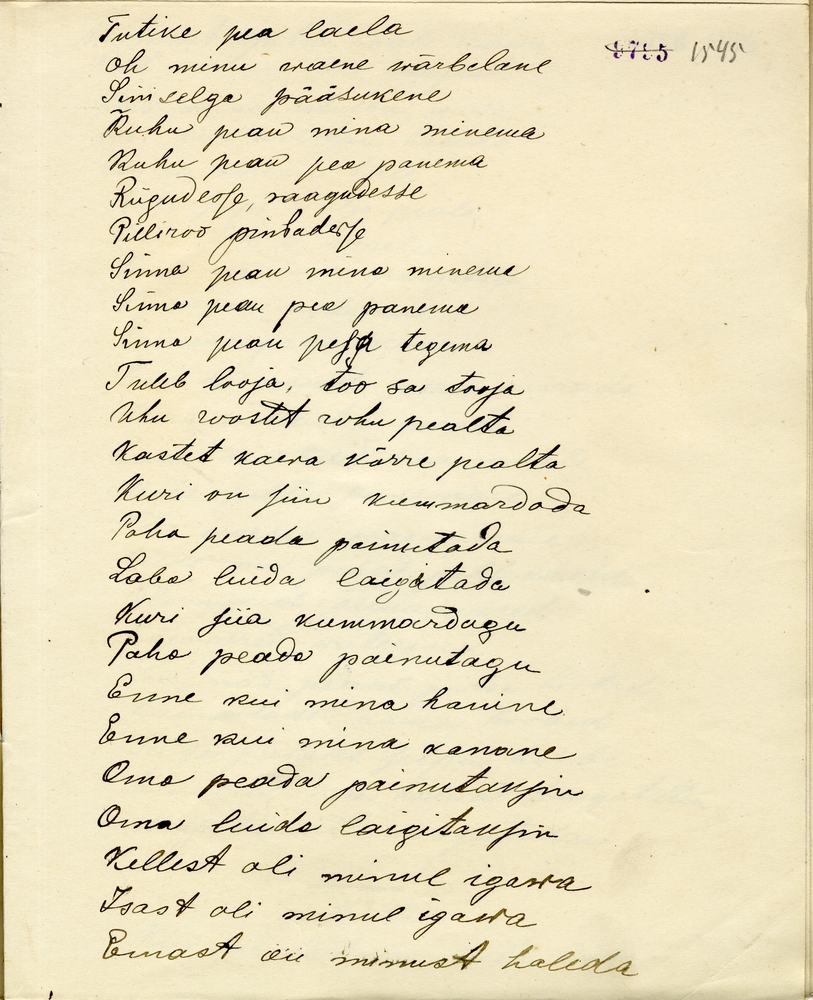 Tutike pea laela
1545
Oh minu waene wärbelane
Sini selga pääsukene
Kuhu pean mina minema
Kuhu pean pea panema
Riigudesse, raagudesse
Pilliroo pinbadesse
Sinna pean mina minema
Sinna pean pea panema
Sinna pean pessa tegema
Tuleb looja, too sa tooja
Uhu woostet rohu pealta
Kastet kaera kõrre pealta
Kuri on siin kummardada
Paha peada painutada
Laba luida laigitada
Kuri siia kummardagu
Paha peada painutagu
Enne kui mina hanine
Enne kui mina kanane
Oma peada painutaksin
Oma luida laigitaksin
Kellest oli minul igawa
Isast oli minul igawa
Emast oli minust haleda